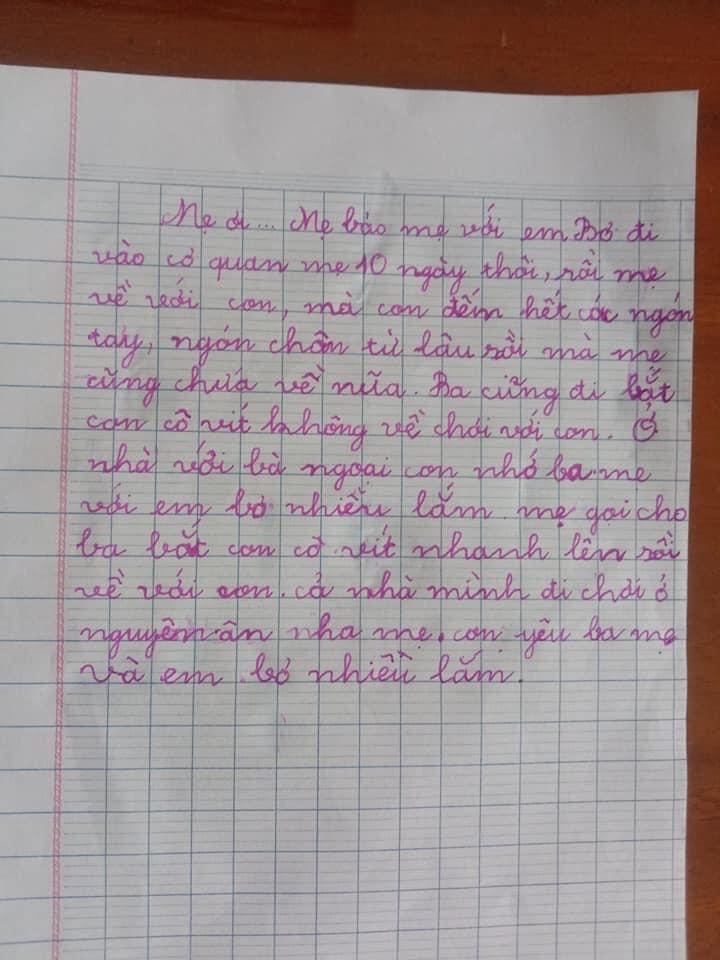 Mẹ ơi... Mẹ bảo mẹ với em Bơ đi
vào cơ quan mẹ 10 ngày thôi, rồi mẹ
về với con, mà con đếm hết các ngón
tay, ngón chân từ lâu rồi mà mẹ
cũng chưa về nữa. Ba cũng đi bắt
con cô vít không về chơi với con. Ở
nhà với bà ngoại con nhớ ba mẹ
với em bơ nhiều lắm mẹ gọi cho
ba bắt con cô vít nhanh lên rồi
về với con. cả nhà mình đi chơi ở
nguyên ân nha mẹ. con yêu ba mẹ
và em bơ nhiều lắm.